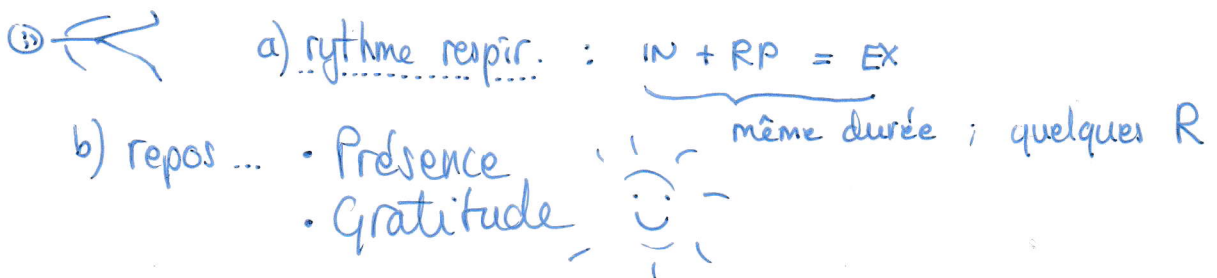 a) rythme respir. : IN + RP = EX
même durée ; quelques R
b) repos ... • Présence
• Gratitude